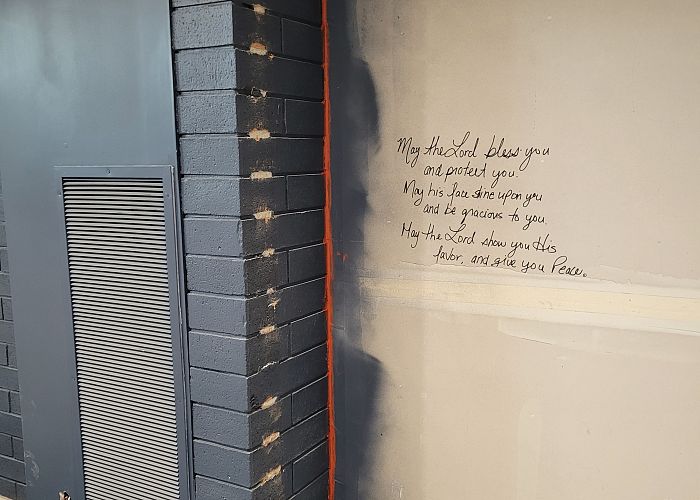 May the Lord bless you
and protect you.
May his face shine upon you
and be gracious to you.
May the Lord show you His
favor, and give you Peace.